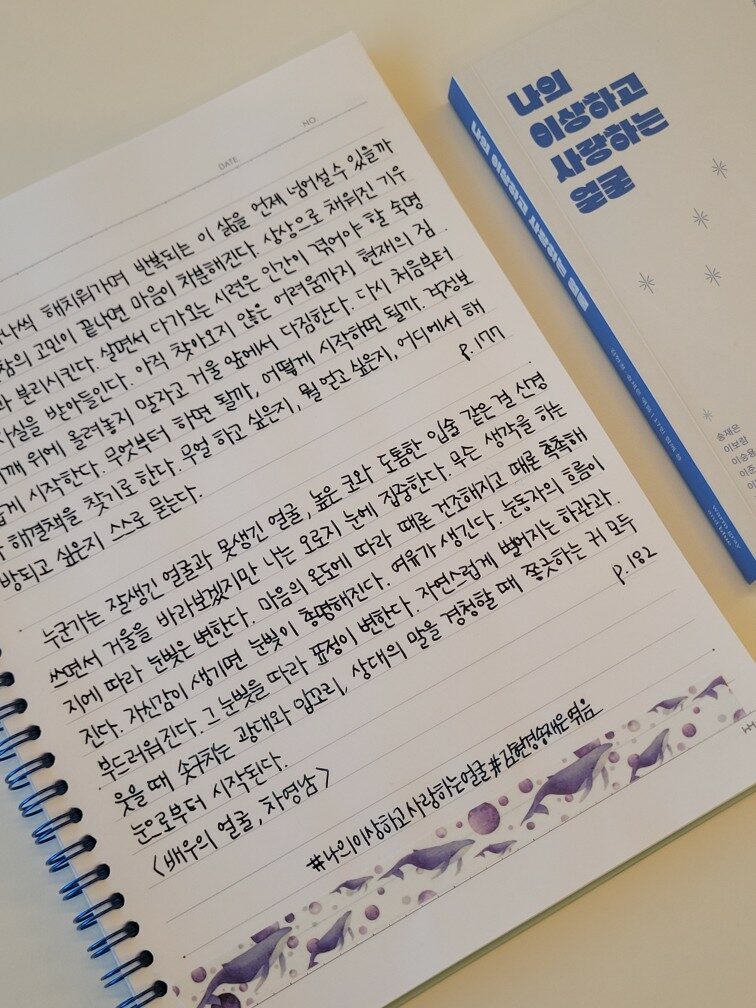 DATE
NO.
나씩 해치워가며 반복되는 이 삶을 언제 넘어설 수 있을까
의 고민이 끝나면 마음이 차분해진다. 상상으로 채워진 기우
와 분리시킨다. 살면서 다가오는 시련은 인간이 겪어야 할 숙명
사실을 받아들인다. 아직 찾아오지 않은 어려움까지 현재의 짐
깨 위에 올려놓지 말자고 거울 앞에서 다짐한다. 다시 처음부터
게 시작한다. 무엇부터 하면 될까, 어떻게 시작하면 될까. 걱정보
해결책을 찾기로 한다. 무얼 하고 싶은지, 뭘 얻고 싶은지, 어디에서 해
방되고 싶은지 스스로 묻는다.
p.177
누군가는 잘생긴 얼굴과 못생긴 얼굴, 높은 코와 도톰한 입술 같은 걸 신경
쓰면서 거울을 바라보겠지만 나는 오로지 눈에 집중한다. 무슨 생각을 하는
지에 따라 눈빛은 변한다. 마음의 온도에 따라 때론 건조해지고 때론 촉촉해
진다. 자신감이 생기면 눈빛이 총명해진다. 여유가 생긴다. 눈동자의 흐름이
부드러워진다. 그 눈빛을 따라 표정이 변한다. 자연스럽게 떨어지는 하관과
웃을 때 솟구치는 광대와 입꼬리, 상대의 말을 경청할 때 쫑긋하는 귀 모두
눈으로부터 시작된다.
p.182
<배우의 얼굴, 차영남>
#나의이상하고사랑하는얼굴 #김현경송재은엮음
나의
이상하고
사랑하는
얼굴
나의 이상하고 사랑하는 얼굴
warm gray
and blue
송재은
이보람
이승용